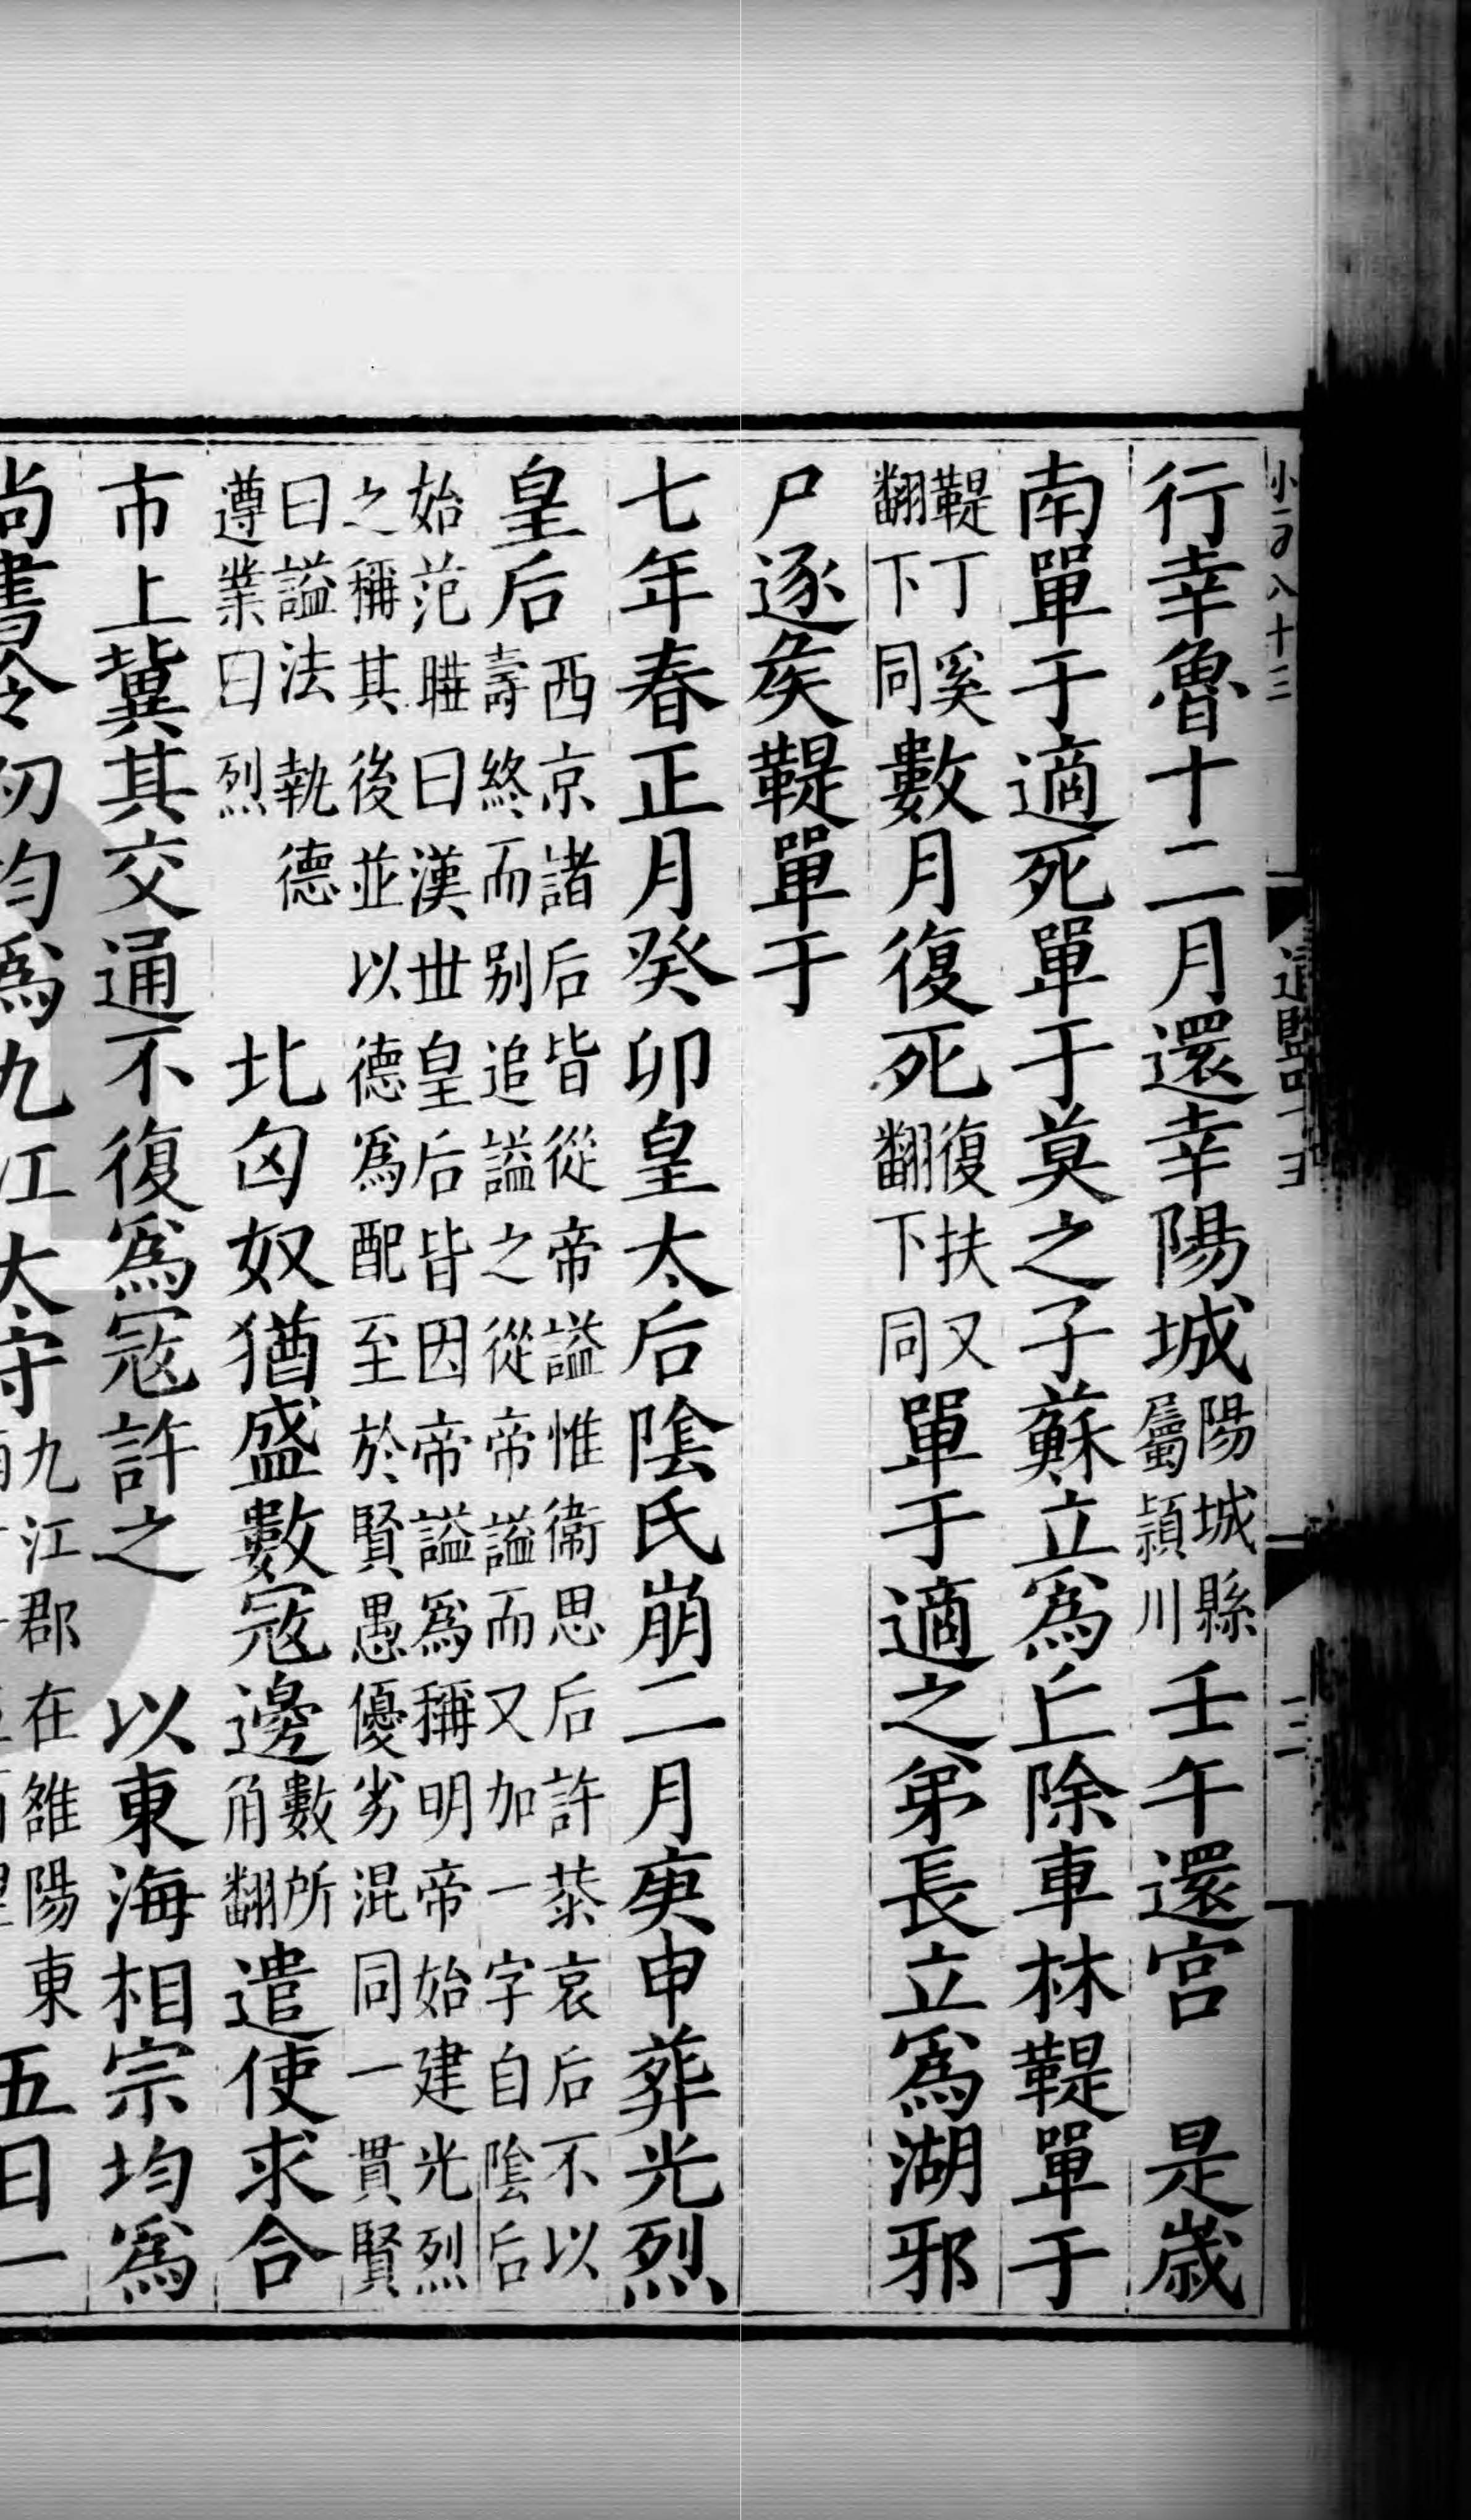 行幸魯十二月還幸陽城陽城縣屬潁川壬午還宮 是歲
南單于適死單于莫之子蘇立為丘除車林鞮單于
鞮丁奚翻下同數月復死復扶又翻下同單于適之弟長立為湖邪
尸逐矦鞮單于
七年春正月癸卯皇太后陰氏崩二月庚申葬光烈
皇后西京諸后皆從帝謚惟衞思后許恭哀后不以壽終而别追謚之從帝謚而又加一字自陰后
始范曄曰漢世皇后皆因帝謚為稱明帝始建光烈之稱其後並以德為配至於賢愚優劣混同一貫賢
曰謚法執德遵業曰烈 北匈奴猶盛數寇邊數所角翻遣使求合
市上冀其交通不復為寇許之 以東海相宗均為
尚書令初均為九江太守九江郡在雒陽東五日一